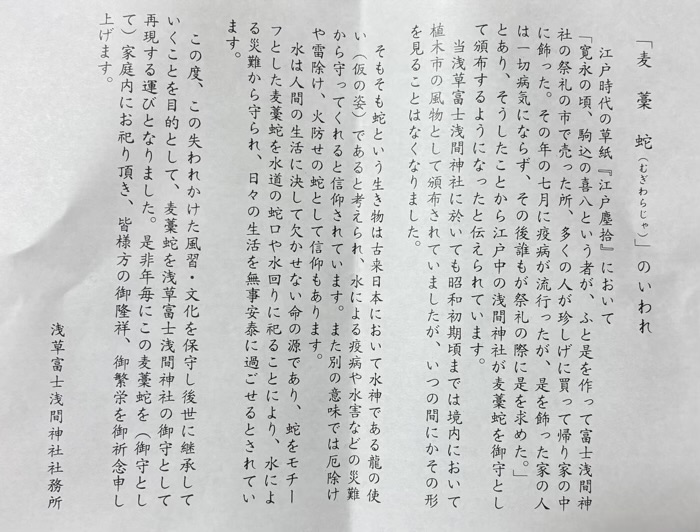 「麦藁蛇（むぎわらじゃ）」のいわれ
江戸時代の草紙『江戸塵拾』において
「寛永の頃、駒込の喜八という者が、ふと是を作って富士浅間神
社の祭礼の市で売った所、多くの人が珍しげに買って帰り家の中
に飾った。その年の七月に疫病が流行ったが、是を飾った家の人
は一切病気にならず、その後誰もが祭礼の際に是を求めた。」
とあり、そうしたことから江戸中の浅間神社が麦藁蛇を御守とし
て頒布するようになったと伝えられています。
当浅草富士浅間神社に於いても昭和初期頃までは境内において
植木市の風物として頒布されていましたが、いつの間にかその形
を見ることはなくなりました。
そもそも蛇という生き物は古来日本において水神である龍の使
い（仮の姿）であると考えられ、水による疫病や水害などの災難
から守ってくれると信仰されています。また別の意味では厄除け
や雷除け、火防せの蛇として信仰もあります。
水は人間の生活に決して欠かせない命の源であり、蛇をモチー
フとした麦藁蛇を水道の蛇口や水回りに祀ることにより、水によ
る災難から守られ、日々の生活を無事安泰に過ごせるとされてい
ます。
この度、この失われかけた風習・文化を保守し後世に継承して
いくことを目的として、麦藁蛇を浅草富士浅間神社の御守として
再現する運びとなりました。是非年毎にこの麦藁蛇を（御守とし
て）家庭内にお祀り頂き、皆様方の御隆祥、御繁栄を御祈念申し
上げます。
浅草富士浅間神社社務所